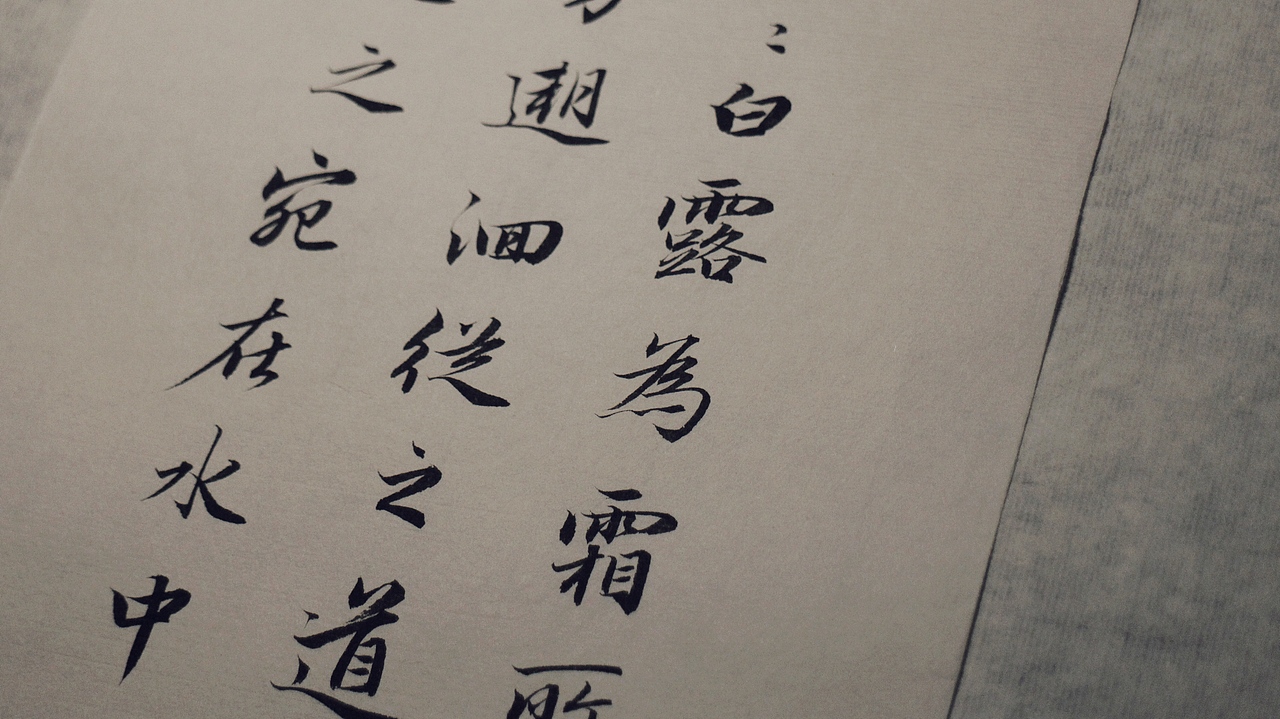 〻白露為霜所
方遡洄從之道
之宛在水中